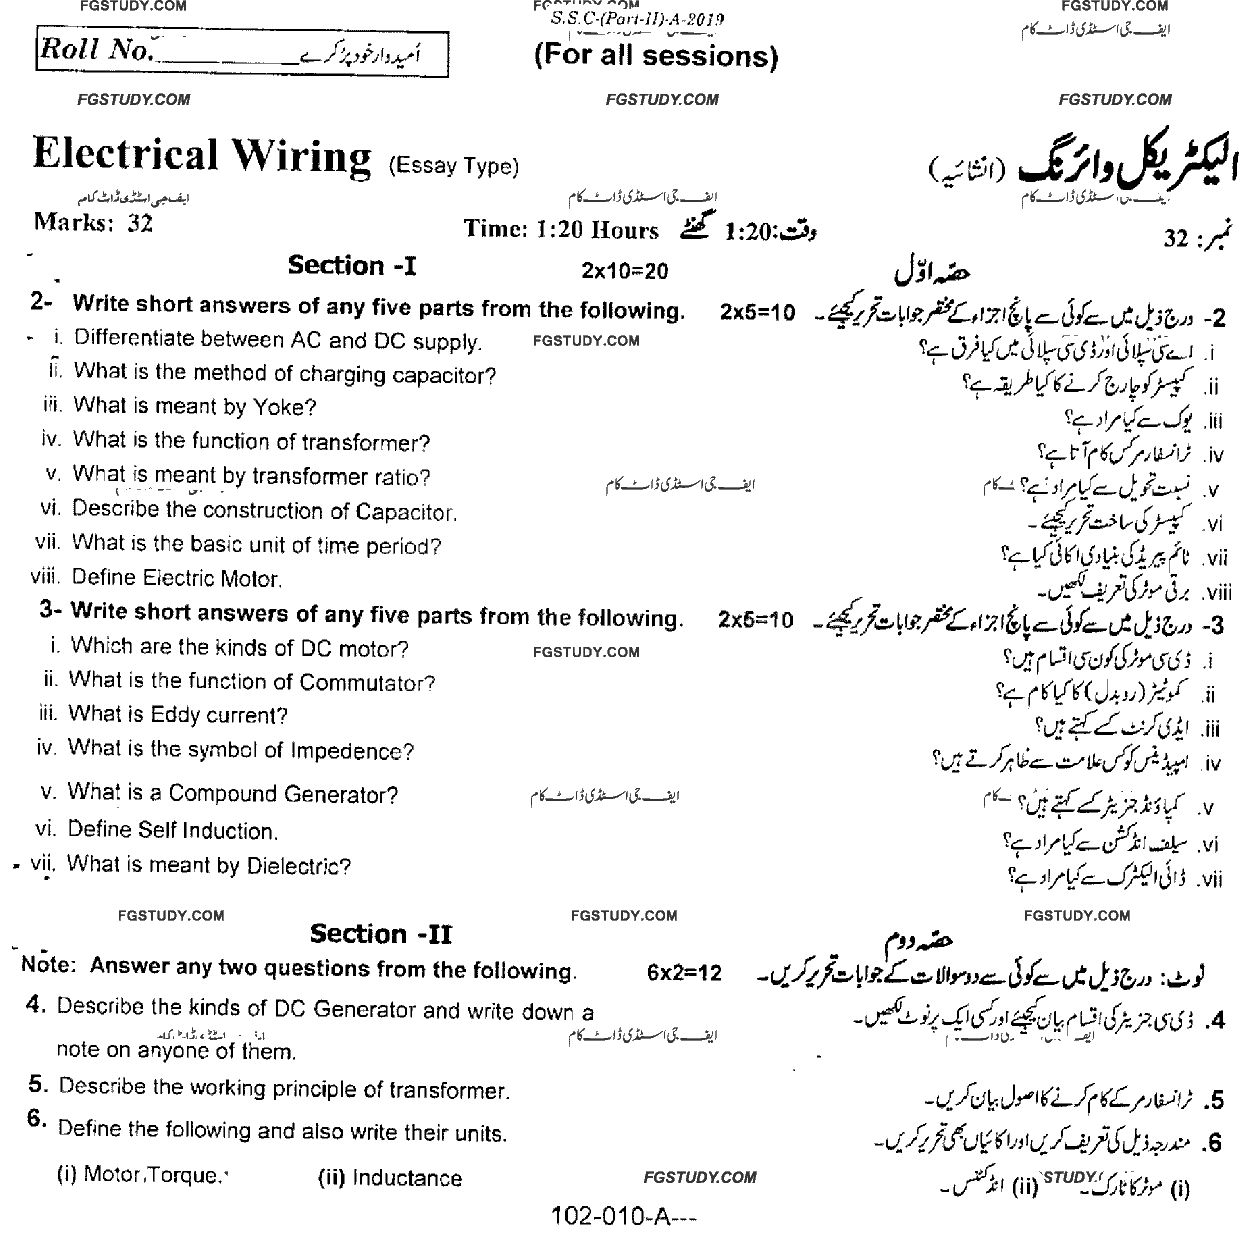 FGSTUDY.COM FGSTUDY.COM
S.S.C-(Part-II)-A-2019
ایف جی اسٹڈی ڈاٹ کام
Roll No. __________ اُمیدوار خود پُر کرے
(For all sessions)
FGSTUDY.COM FGSTUDY.COM FGSTUDY.COM
Electrical Wiring (Essay Type) الیکٹریکل وائرنگ (انشائیہ)
ایف جی اسٹڈی ڈاٹ کام ایف جی اسٹڈی ڈاٹ کام ایف جی اسٹڈی ڈاٹ کام
Marks: 32 Time: 1:20 Hours وقت: 1:20 گھنٹے نمبر: 32
Section -I 2x10=20 حصّہ اوّل
2- Write short answers of any five parts from the following. 2x5=10 2- درج ذیل میں سے کوئی سے پانچ اجزاء کے مختصر جوابات تحریر کیجئے۔
i. Differentiate between AC and DC supply. FGSTUDY.COM i. اے سی سپلائی اور ڈی سی سپلائی میں کیا فرق ہے؟
ii. What is the method of charging capacitor? ii. کپیسٹر کو چارج کرنے کا کیا طریقہ ہے؟
iii. What is meant by Yoke? iii. یوک سے کیا مراد ہے؟
iv. What is the function of transformer? iv. ٹرانسفارمر کس کام آتا ہے؟
v. What is meant by transformer ratio? ایف جی اسٹڈی ڈاٹ کام v. نسبت تحویل سے کیا مراد ہے؟ کام
vi. Describe the construction of Capacitor. vi. کپیسٹر کی ساخت تحریر کیجئے۔
vii. What is the basic unit of time period? vii. ٹائم پیریڈ کی بنیادی اکائی کیا ہے؟
viii. Define Electric Motor. viii. برقی موٹر کی تعریف لکھیں۔
3- Write short answers of any five parts from the following. 2x5=10 3- درج ذیل میں سے کوئی سے پانچ اجزاء کے مختصر جوابات تحریر کیجئے۔
i. Which are the kinds of DC motor? FGSTUDY.COM i. ڈی سی موٹر کی کون سی اقسام ہیں؟
ii. What is the function of Commutator? ii. کموٹیٹر (ردوبدل) کا کیا کام ہے؟
iii. What is Eddy current? iii. ایڈی کرنٹ کسے کہتے ہیں؟
iv. What is the symbol of Impedence? iv. امپیڈینس کو کس علامت سے ظاہر کرتے ہیں؟
v. What is a Compound Generator? ایف جی اسٹڈی ڈاٹ کام v. کمپاؤنڈ جنریٹر کسے کہتے ہیں؟ کام
vi. Define Self Induction. vi. سیلف انڈکشن سے کیا مراد ہے؟
vii. What is meant by Dielectric? vii. ڈائی الیکٹرک سے کیا مراد ہے؟
FGSTUDY.COM FGSTUDY.COM FGSTUDY.COM
Section -II حصّہ دوم
Note: Answer any two questions from the following. 6x2=12 نوٹ: درج ذیل میں سے کوئی سے دو سوالات کے جوابات تحریر کریں۔
4. Describe the kinds of DC Generator and write down a 4. ڈی سی جنریٹر کی اقسام بیان کیجئے اور کسی ایک پر نوٹ لکھیں۔
ایف جی اسٹڈی ڈاٹ کام
note on anyone of them.
5. Describe the working principle of transformer. 5. ٹرانسفارمر کے کام کرنے کا اصول بیان کریں۔
6. Define the following and also write their units. 6. مندرجہ ذیل کی تعریف کریں اور اکائیاں بھی تحریر کریں۔
(i) Motor Torque. (ii) Inductance FGSTUDY.COM (i) موٹر کا ٹارک۔ STUDY (ii) انڈکٹنس۔
102-010-A---